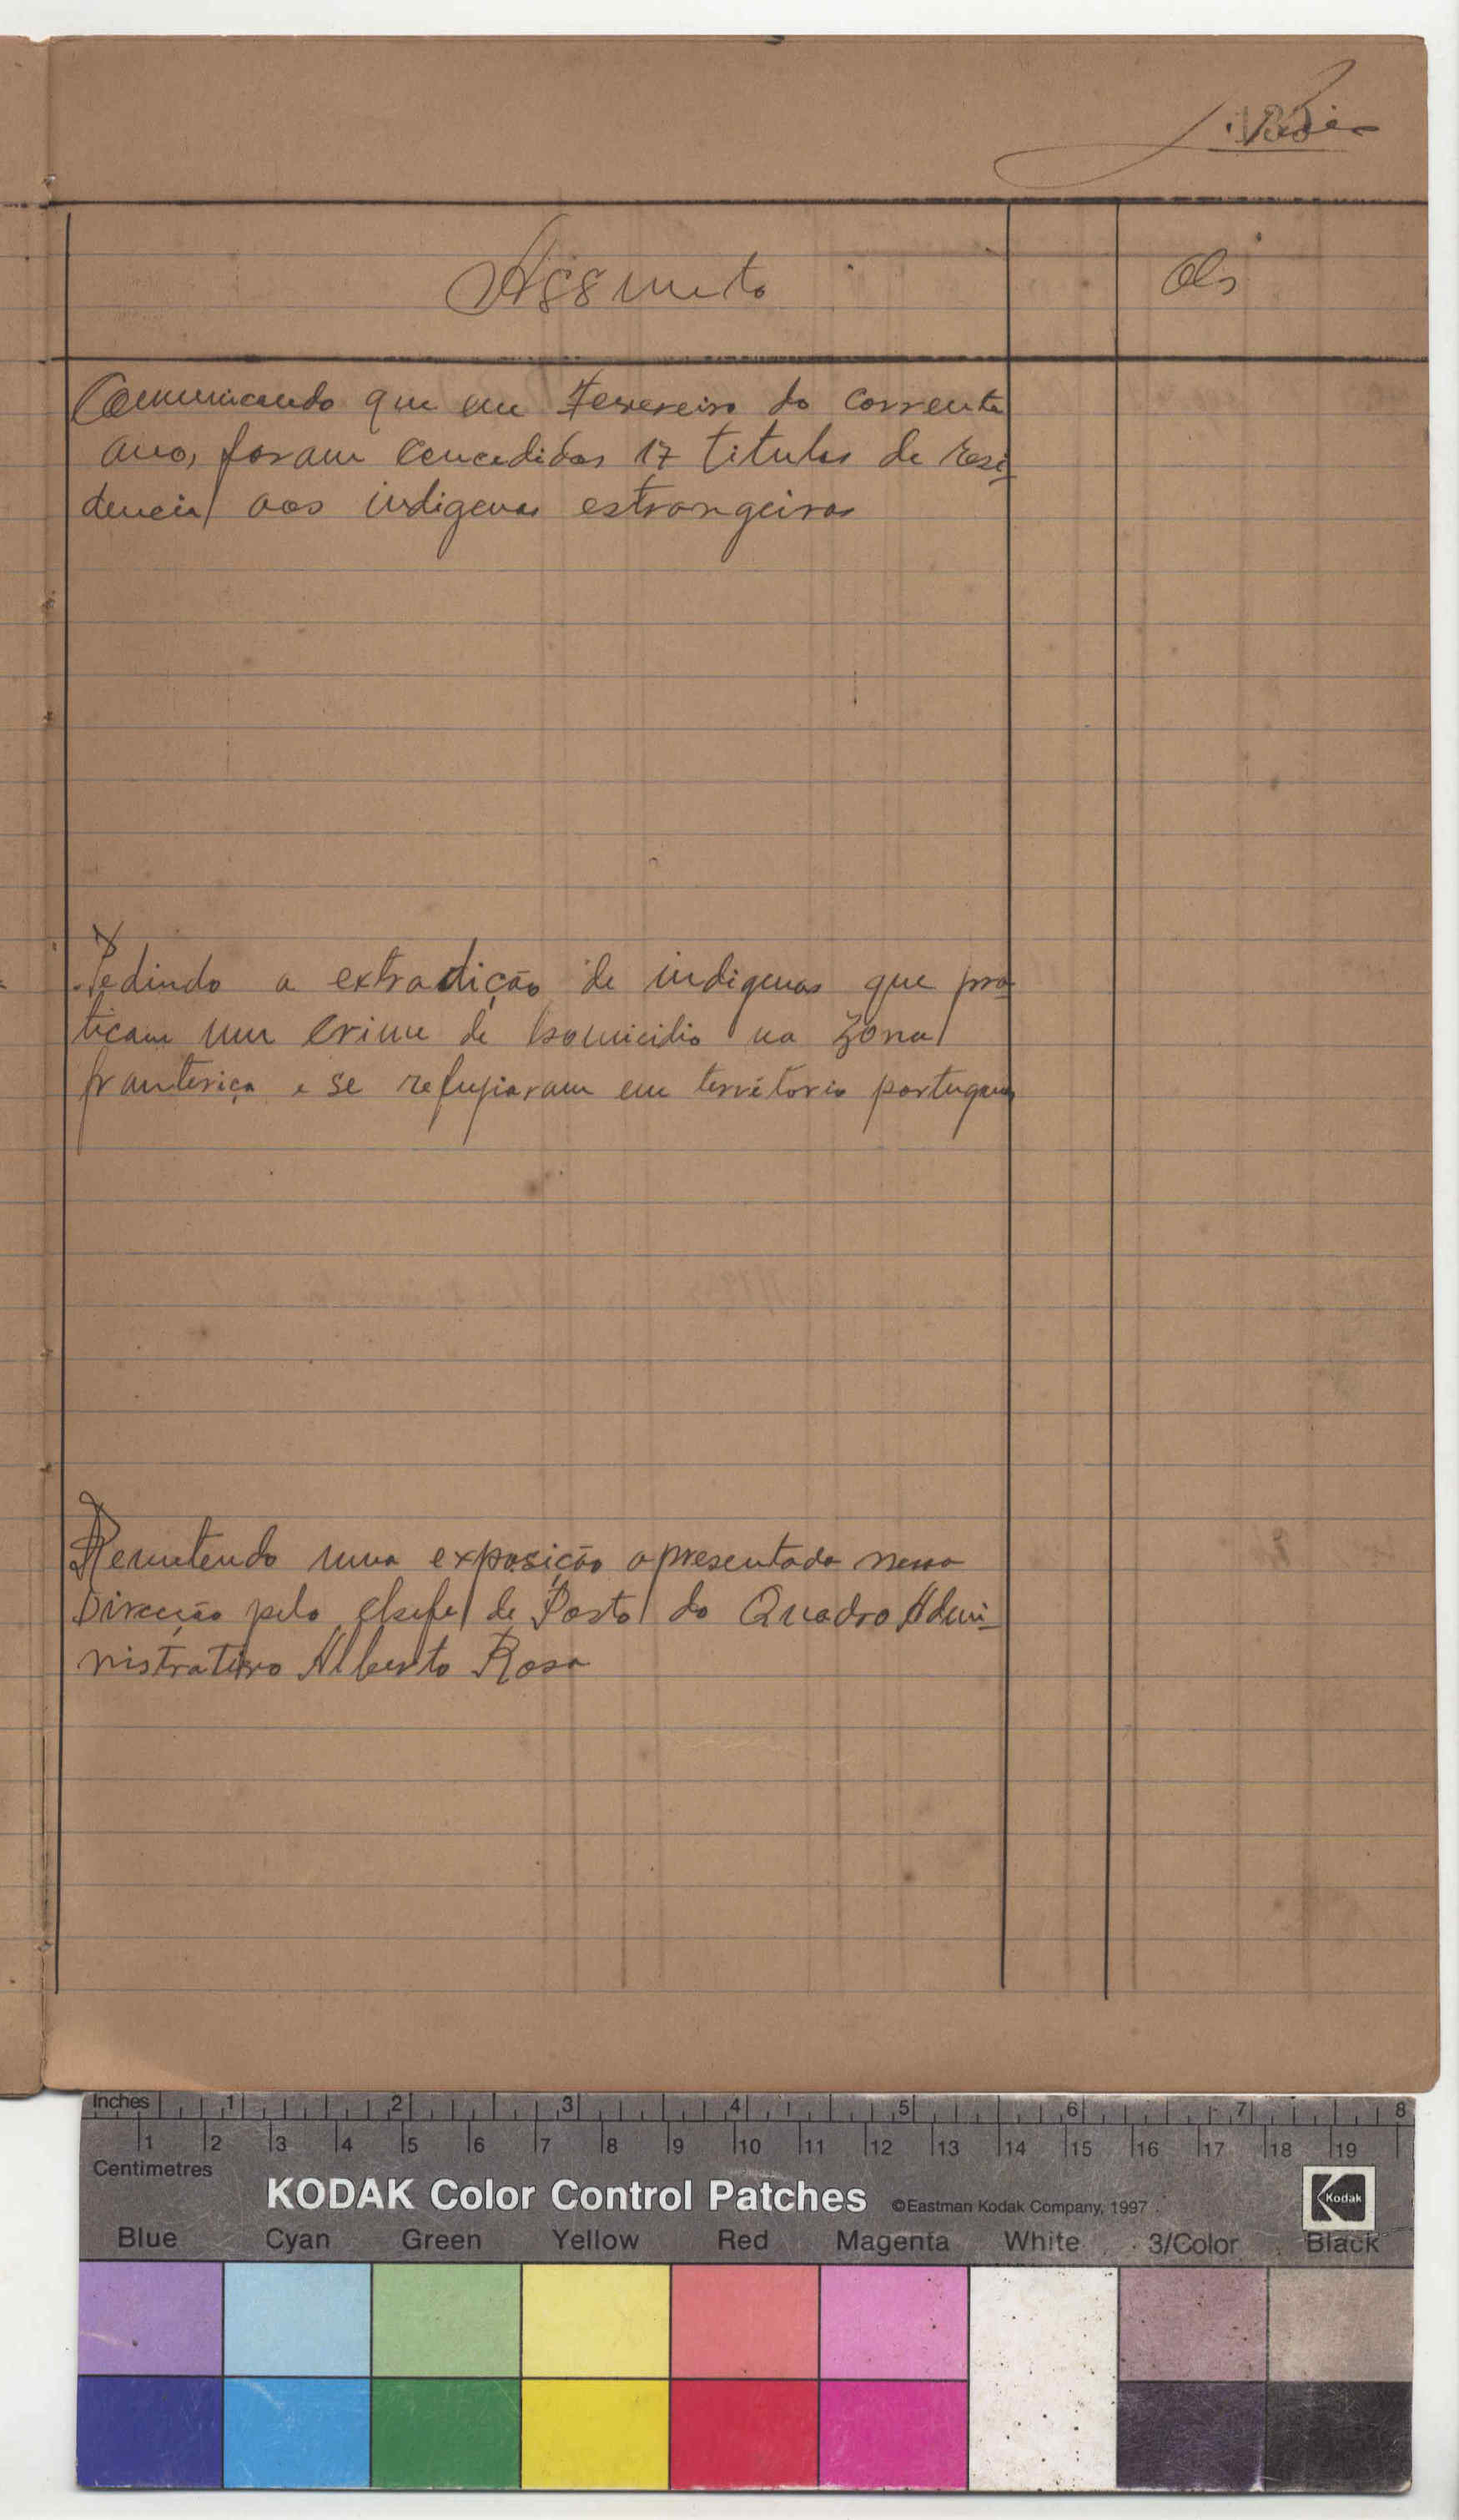 Assunto
Obs
Comunicando que em Fevereiro do corrente
ano, foram concedidos 17 titulos de resi-
dencia aos indigenas estrangeiros
Pedindo a extradição de indigenas que pra-
ticam um crime de homicidio na zona
franteriça e se refugiaram em território portugues
Remetendo uma exposição apresentada nessa
Direcção pelo chefe de Posto do Quadro Admi-
nistrativo Alberto Rosa
Inches 1 2 3 4 5 6 7 8
1 2 3 4 5 6 7 8 9 10 11 12 13 14 15 16 17 18 19
Centimetres
KODAK Color Control Patches ©Eastman Kodak Company, 1997 Kodak
Blue Cyan Green Yellow Red Magenta White 3/Color Black